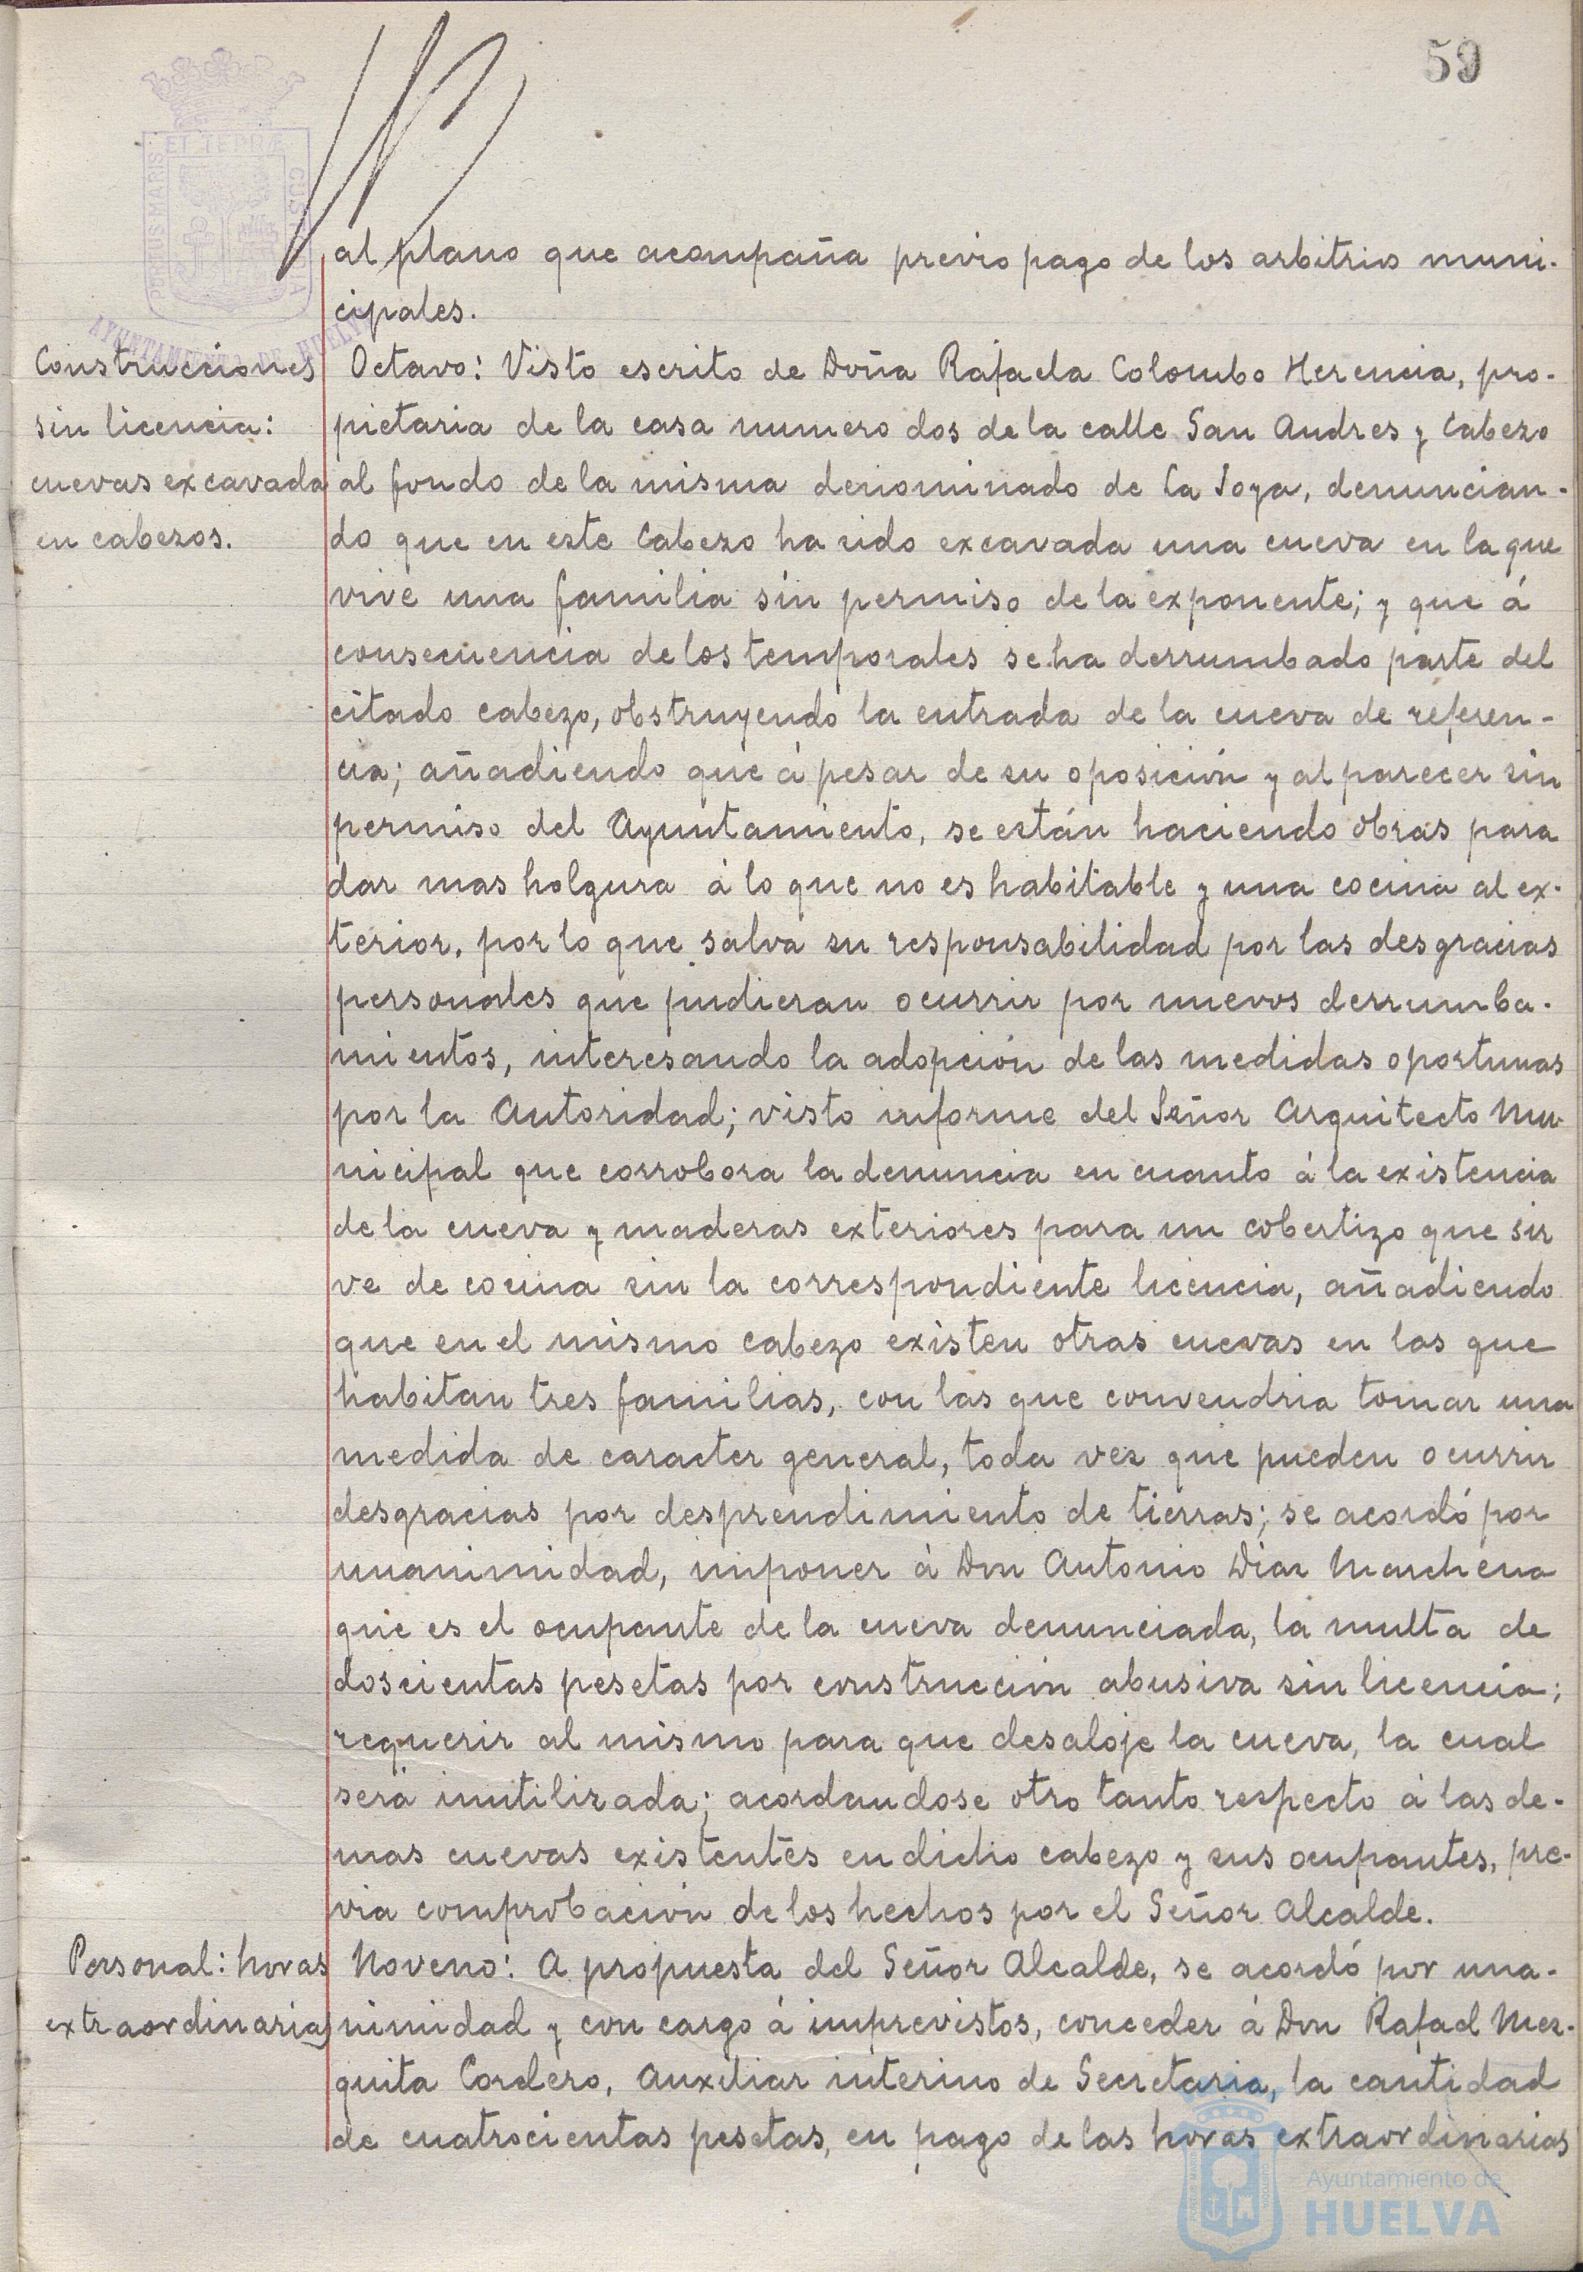 59
PORTUS MARIS
ET TERRÆ
CUSTODIA
AYUNTAMIENTO DE HUELVA
al plano que acompaña previo pago de los arbitrios muni-
cipales.
Construcciones
sin licencia:
cuevas excavada
en cabezos.
Octavo: Visto escrito de Doña Rafaela Colombo Herencia, pro-
pietaria de la casa numero dos de la calle San Andres y Cabezo
al fondo de la misma denominado de la Joya, denuncian-
do que en este Cabezo ha sido excavada una cueva en la que
vive una familia sin permiso de la exponente; y que á
consecuencia de los temporales se ha derrumbado parte del
citado cabezo, obstruyendo la entrada de la cueva de referen-
cia; añadiendo que á pesar de su oposición y al parecer sin
permiso del Ayuntamiento, se están haciendo obras para
dar mas holgura á lo que no es habitable y una cocina al ex-
terior, por lo que salva su responsabilidad por las desgracias
personales que pudieran ocurrir por nuevos derrumba-
mientos, interesando la adopción de las medidas oportunas
por la Autoridad; visto informe del Señor Arquitecto Mu-
nicipal que corrobora la denuncia en cuanto á la existencia
de la cueva y maderas exteriores para un cobertizo que sir
ve de cocina sin la correspondiente licencia, añadiendo
que en el mismo cabezo existen otras cuevas en las que
habitan tres familias, con las que convendria tomar una
medida de caracter general, toda vez que pueden ocurrir
desgracias por desprendimiento de tierras; se acordó por
unanimidad, imponer á Don Antonio Diaz Marchena
que es el ocupante de la cueva denunciada, la multa de
doscientas pesetas por construcción abusiva sin licencia;
requerir al mismo para que desaloje la cueva, la cual
será inutilizada; acordandose otro tanto respecto á las de-
mas cuevas existentes en dicho cabezo y sus ocupantes, pre-
via comprobación de los hechos por el Señor Alcalde.
Personal: horas
extraordinarias
Noveno: A propuesta del Señor Alcalde, se acordó por una-
nimidad y con cargo á imprevistos, conceder á Don Rafael Mez-
quita Cordero, Auxiliar interino de Secretaria, la cantidad
de cuatrocientas pesetas, en pago de las horas extraordinarias
Ayuntamiento de
HUELVA